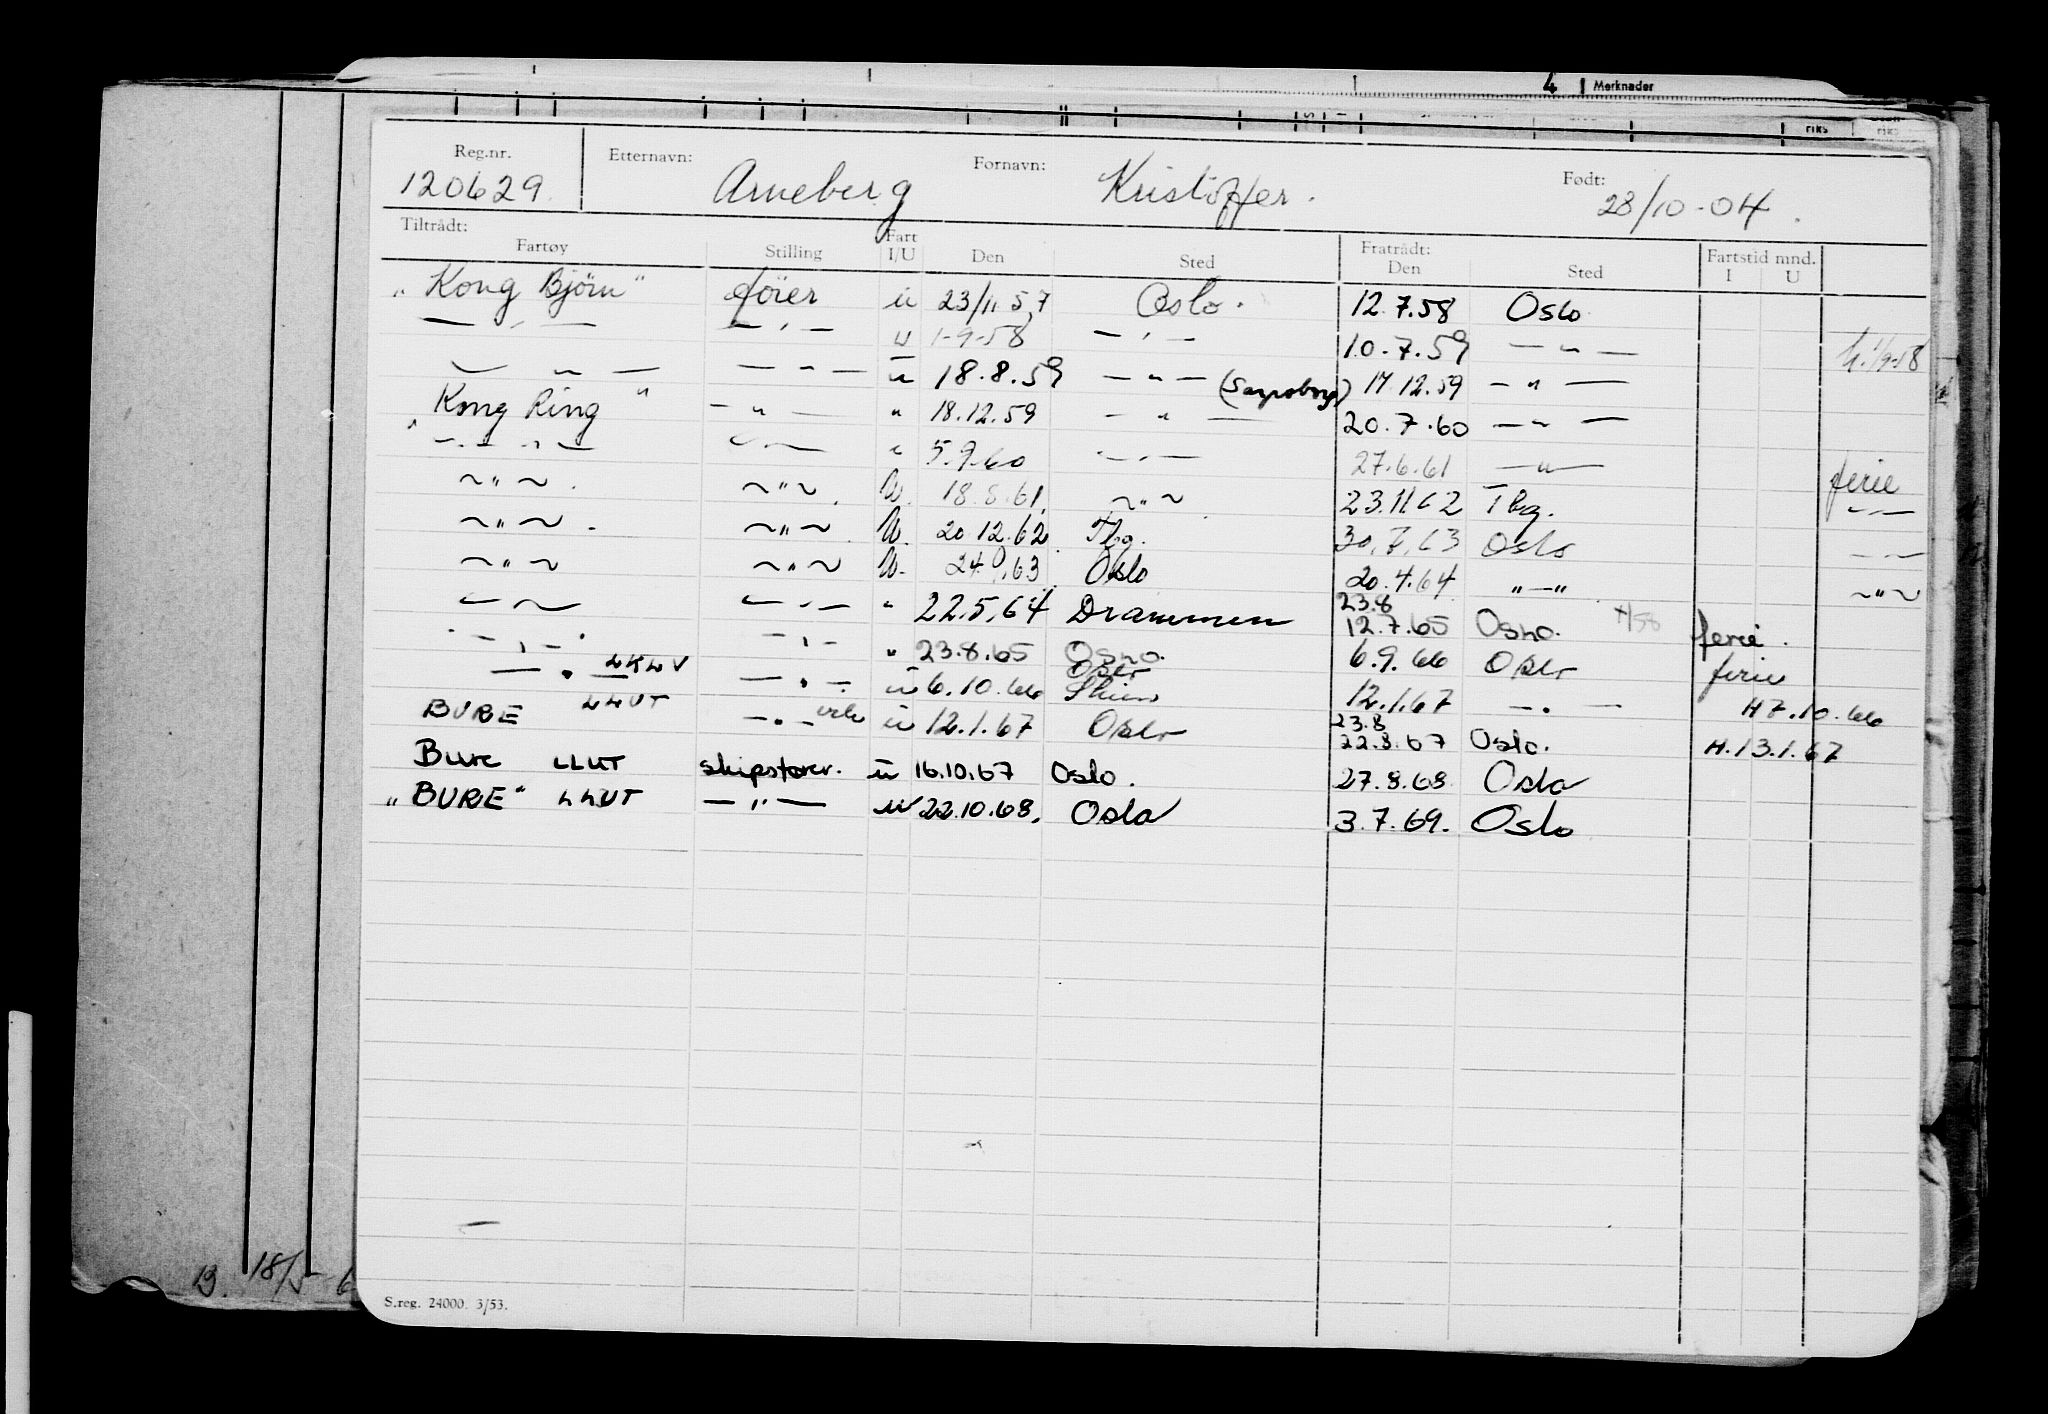 4 Merknader
riks riks
Reg.nr. Etternavn: Fornavn: Født:
120629. Arneberg Kristoffer. 28/10-04.
Tiltrådt: Fratrådt: Fartstid mnd.
Fartøy Stilling Fart I/U Den Sted Den Sted I U
"Kong Björn" förer u 23/11 57 Oslo. 12.7.58 Oslo
— " — — " — u 1-9-58 — " — 10.7.59 — " — h. 1/9-58
— " — — " — u 18.8.59 — " — (Sarpsborg) 17.12.59 — " —
"Kong Ring" — " — " 18.12.59 — " — 20.7.60 — " —
— " — — " — " 5.9.60 — " — 27.6.61 — " — ferie
— " — . — " — . U. 18.8.61. — " — . 23.11.62 Tbg. — " —
— " — . — " — . U. 20.12.62 Tbg. 30.7.63 Oslo — " —
— " — — " — U. 24.9.63 Oslo 20.4.64 " — " — " —
— " — — " — " 22.5.64 Drammen 23.8 12.7.65 Oslo. ferie.
— " — — " — " 23.8.65 Oslo. 6.9.66 Oslo ferie
— " — LKLV — " — u 6.10.66 Oslo Skien 12.1.67 — " — H 7.10.66
BURE LLUT — " — u 12.1.67 Oslo 23.8 22.8.67 Oslo. H. 13.1.67
Bure LLUT skipsfører. u 16.10.67 Oslo. 27.8.68 Oslo
"BURE" LLUT — " — u 22.10.68. Oslo 3.7.69. Oslo
B. 18/5 6
S.reg. 24000. 3/53.